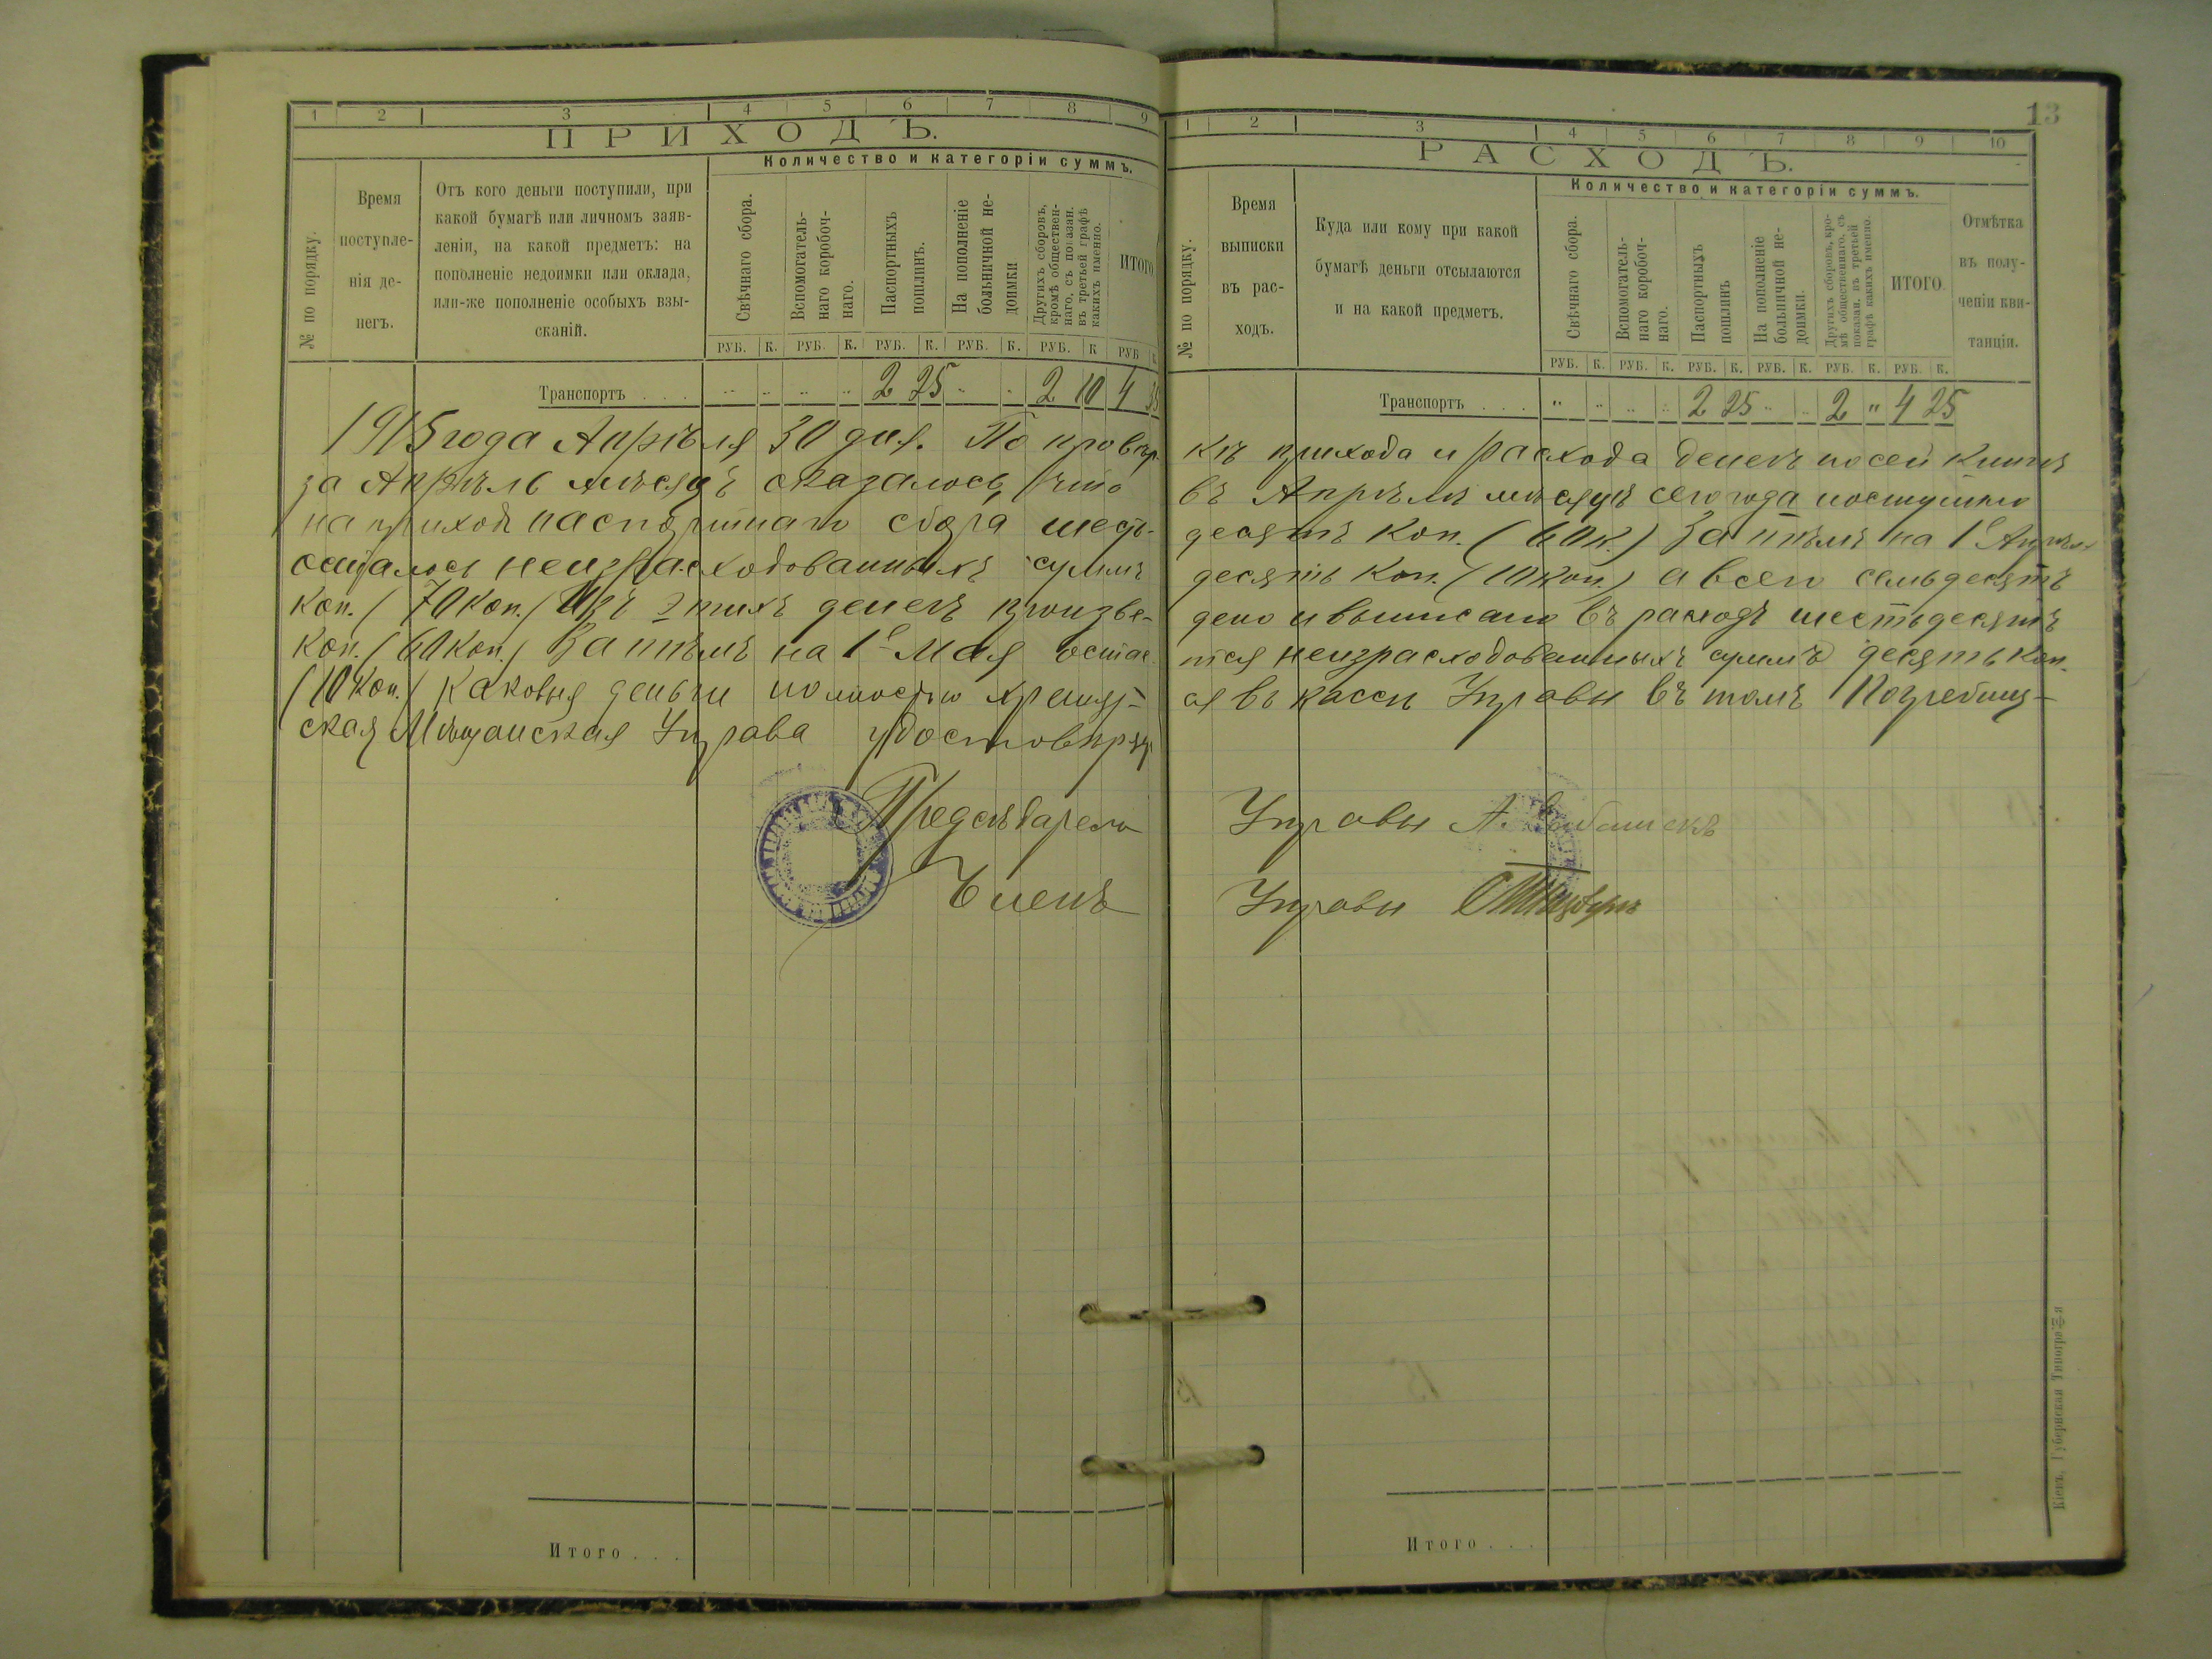 1 2 3 4 5 6 7 8 9
ПРИХОДЪ.
Количество и категоріи суммъ.
№ по порядку.
Время поступле-
нія де-
негъ.
Отъ кого деньги поступили, при
какой бумагѣ или личномъ заяв-
леніи, на какой предметъ: на
пополненіе недоимки или оклада,
или-же пополненіе особыхъ взы-
сканій.
Свѣчнаго сбора.
Вспомогатель-
наго коробоч-
наго.
Паспортныхъ
пошлинъ.
На пополненіе
больничной не-
доимки
Другихъ сборовъ,
кромѣ обществен-
наго, съ показан.
въ третьей графѣ
какихъ именно.
ИТОГО
РУБ. К. РУБ. К. РУБ. К. РУБ. К. РУБ. К РУБ К.
Транспортъ . . . 2 25 2 10 4 35
1915 года Апрѣля 30 дня. По провѣр-
за Апрѣль мѣсяцъ оказалось, что
на приходъ паспортнаго сбора шесть-
осталось неизрасходованныхъ суммъ
коп. (70 коп.) Изъ этихъ денегъ произве-
коп. (60 коп.) Затѣмъ на 1е Мая остае-
(10 коп.) каковыя деньги полностью хранят-
ская Мѣщанская Управа удостовѣряетъ
Предсѣдатель
Членъ
Итого . . .
13
1 2 3 4 5 6 7 8 9 10
РАСХОДЪ.
Количество и категоріи суммъ.
№ по порядку.
Время
выписки
въ рас-
ходъ.
Куда или кому при какой
бумагѣ деньги отсылаются
и на какой предметъ.
Свѣчнаго сбора.
Вспомогатель-
наго коробоч-
наго.
Паспортныхъ
пошлинъ
На пополненіе
больничной не-
доимки.
Другихъ сборовъ, кро-
мѣ общественнаго, съ
показан. въ третьей
графѣ какихъ именно.
ИТОГО.
Отмѣтка
въ полу-
ченіи кви-
танціи.
РУБ. К. РУБ. К. РУБ. К. РУБ. К. РУБ. К. РУБ. К.
Транспортъ . . . " 2 25 2 " 4 25
кѣ прихода и расхода денегъ по сей книгѣ
въ Апрѣлѣ мѣсяцѣ сего года поступило
десятъ коп. (60 к.) Затѣмъ на 1е Апрѣля
десять коп. (10 коп.) а всего семьдесятъ
дено и выписано въ расходъ шестьдесятъ
тся неизрасходованныхъ суммъ десять коп.
ся въ кассѣ Управы въ томъ Погребищ-
Управы А.
Управы
Итого . . .
Кіевъ, Губернская Типографія